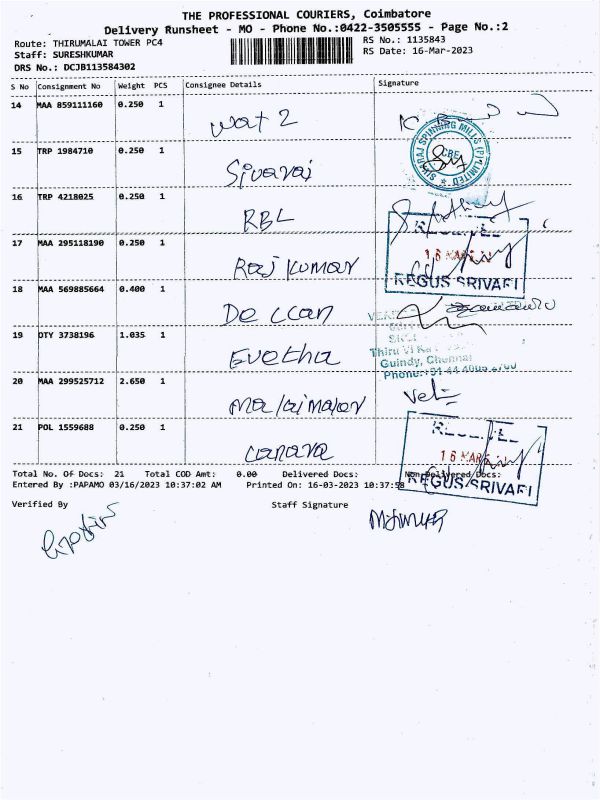 THE PROFESSIONAL COURIERS, Coimbatore
Delivery Runsheet - MO - Phone No.:0422-3505555 - Page No.:2
Route: THIRUMALAI TOWER PC4
RS No.: 1135843
Staff: SURESHKUMAR
RS Date: 16-Mar-2023
DRS No.: DCJB113584302
S No Consignment No Weight PCS Consignee Details Signature
14 MAA 859111160 0.250 1
wat 2
15 TRP 1984710 0.250 1
Sivaraj
16 TRP 4218025 0.250 1
RBL
17 MAA 295118190 0.250 1
Raj Kumar
REGUS SRIVARI
18 MAA 569885664 0.400 1
Deccan
19 OTY 3738196 1.035 1
Guindy, Chennai
20 MAA 299525712 2.650 1
Malaimalar
21 POL 1559688 0.250 1
canara
16 MAR
REGUS SRIVARI
Total No. Of Docs: 21 Total COD Amt: 0.00 Delivered Docs: Non-Delivered Docs:
Entered By :PAPAMO 03/16/2023 10:37:02 AM Printed On: 16-03-2023 10:37:58
Verified By Staff Signature